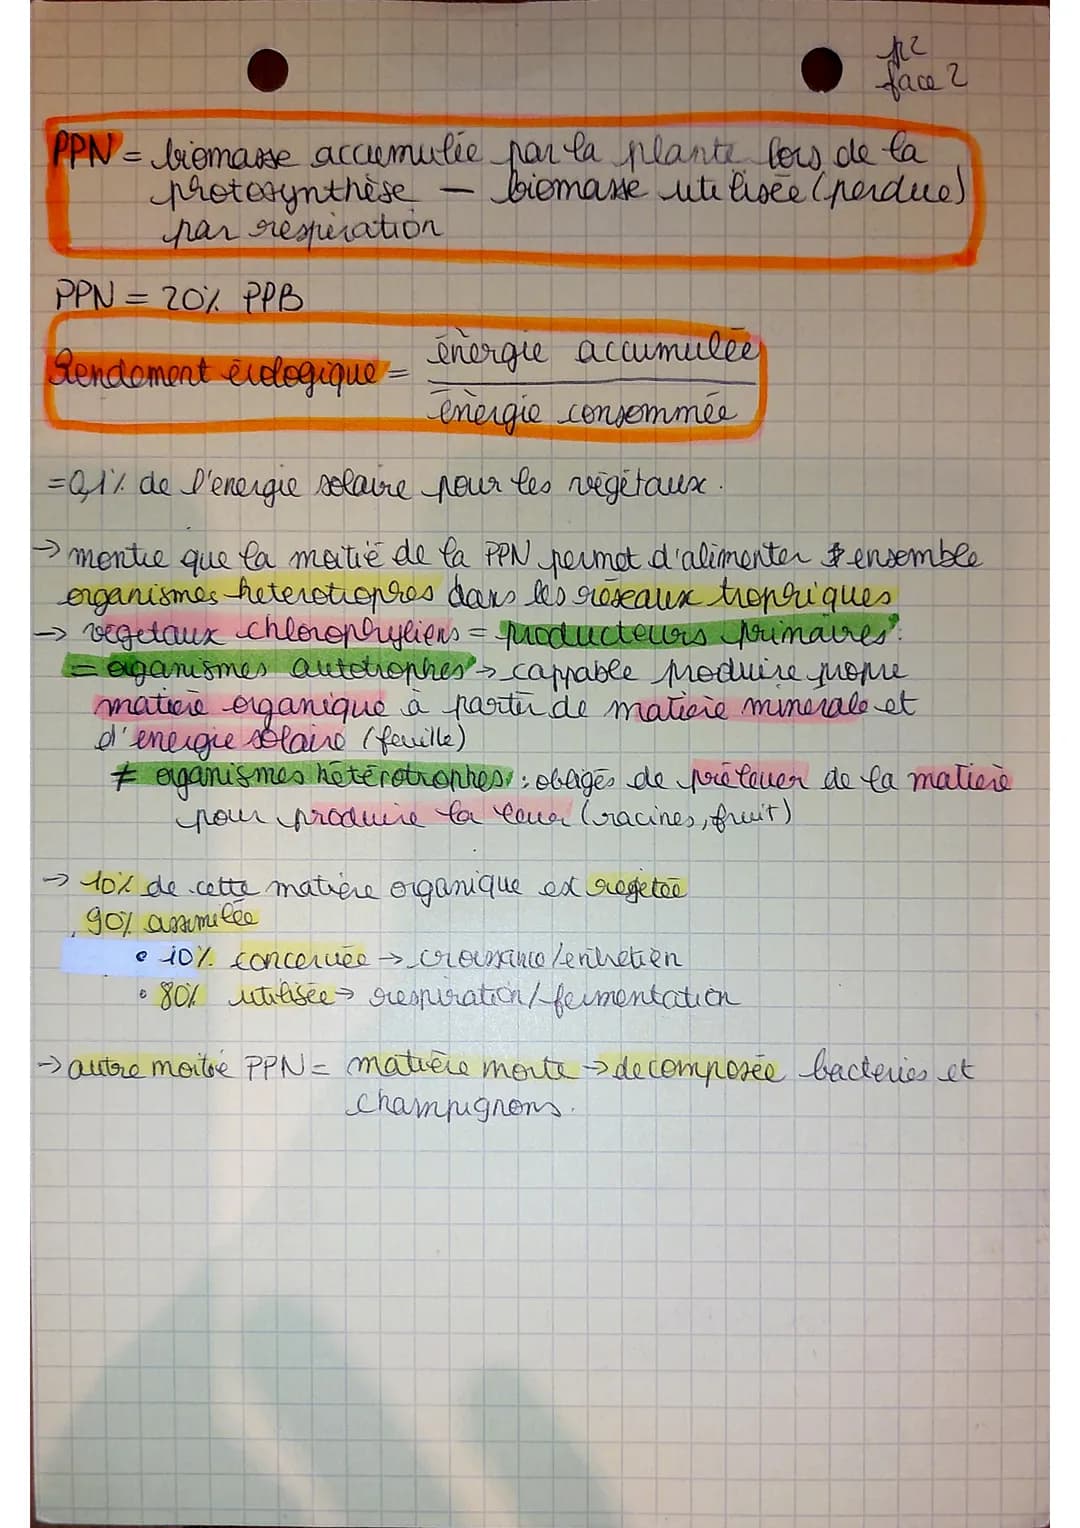 p2
face 2
PPN = biomasse accumulée par la plante lors de la
photosynthèse – biomasse utilisée (perdue)
par respiration
PPN = 20% PPB
Rendement écologique = énergie accumulée
énergie consommée
= 0,1% de l'energie solaire pour les végétaux.
→ montre que la moitié de la PPN permet d'alimenter ensemble
organismes heterotrophes dans les réseaux trophiques
→ vegetaux chlorophyliens = producteurs primaires.
= organismes autotrophes → cappable produire propre
matière organique à partir de matière minerale et
d'energie solaire (feuille)
≠ organismes hétérotrophes : obligés de prélever de la matière
pour produire la leur (racines, fruit)
→ 10% de cette matière organique est rejetée
90% assimilée
• 10% concervée → croissance/entretien
• 80% utilisée → respiration/fermentation
→ autre moitié PPN = matière morte → decomposée bacteries et
champignons.